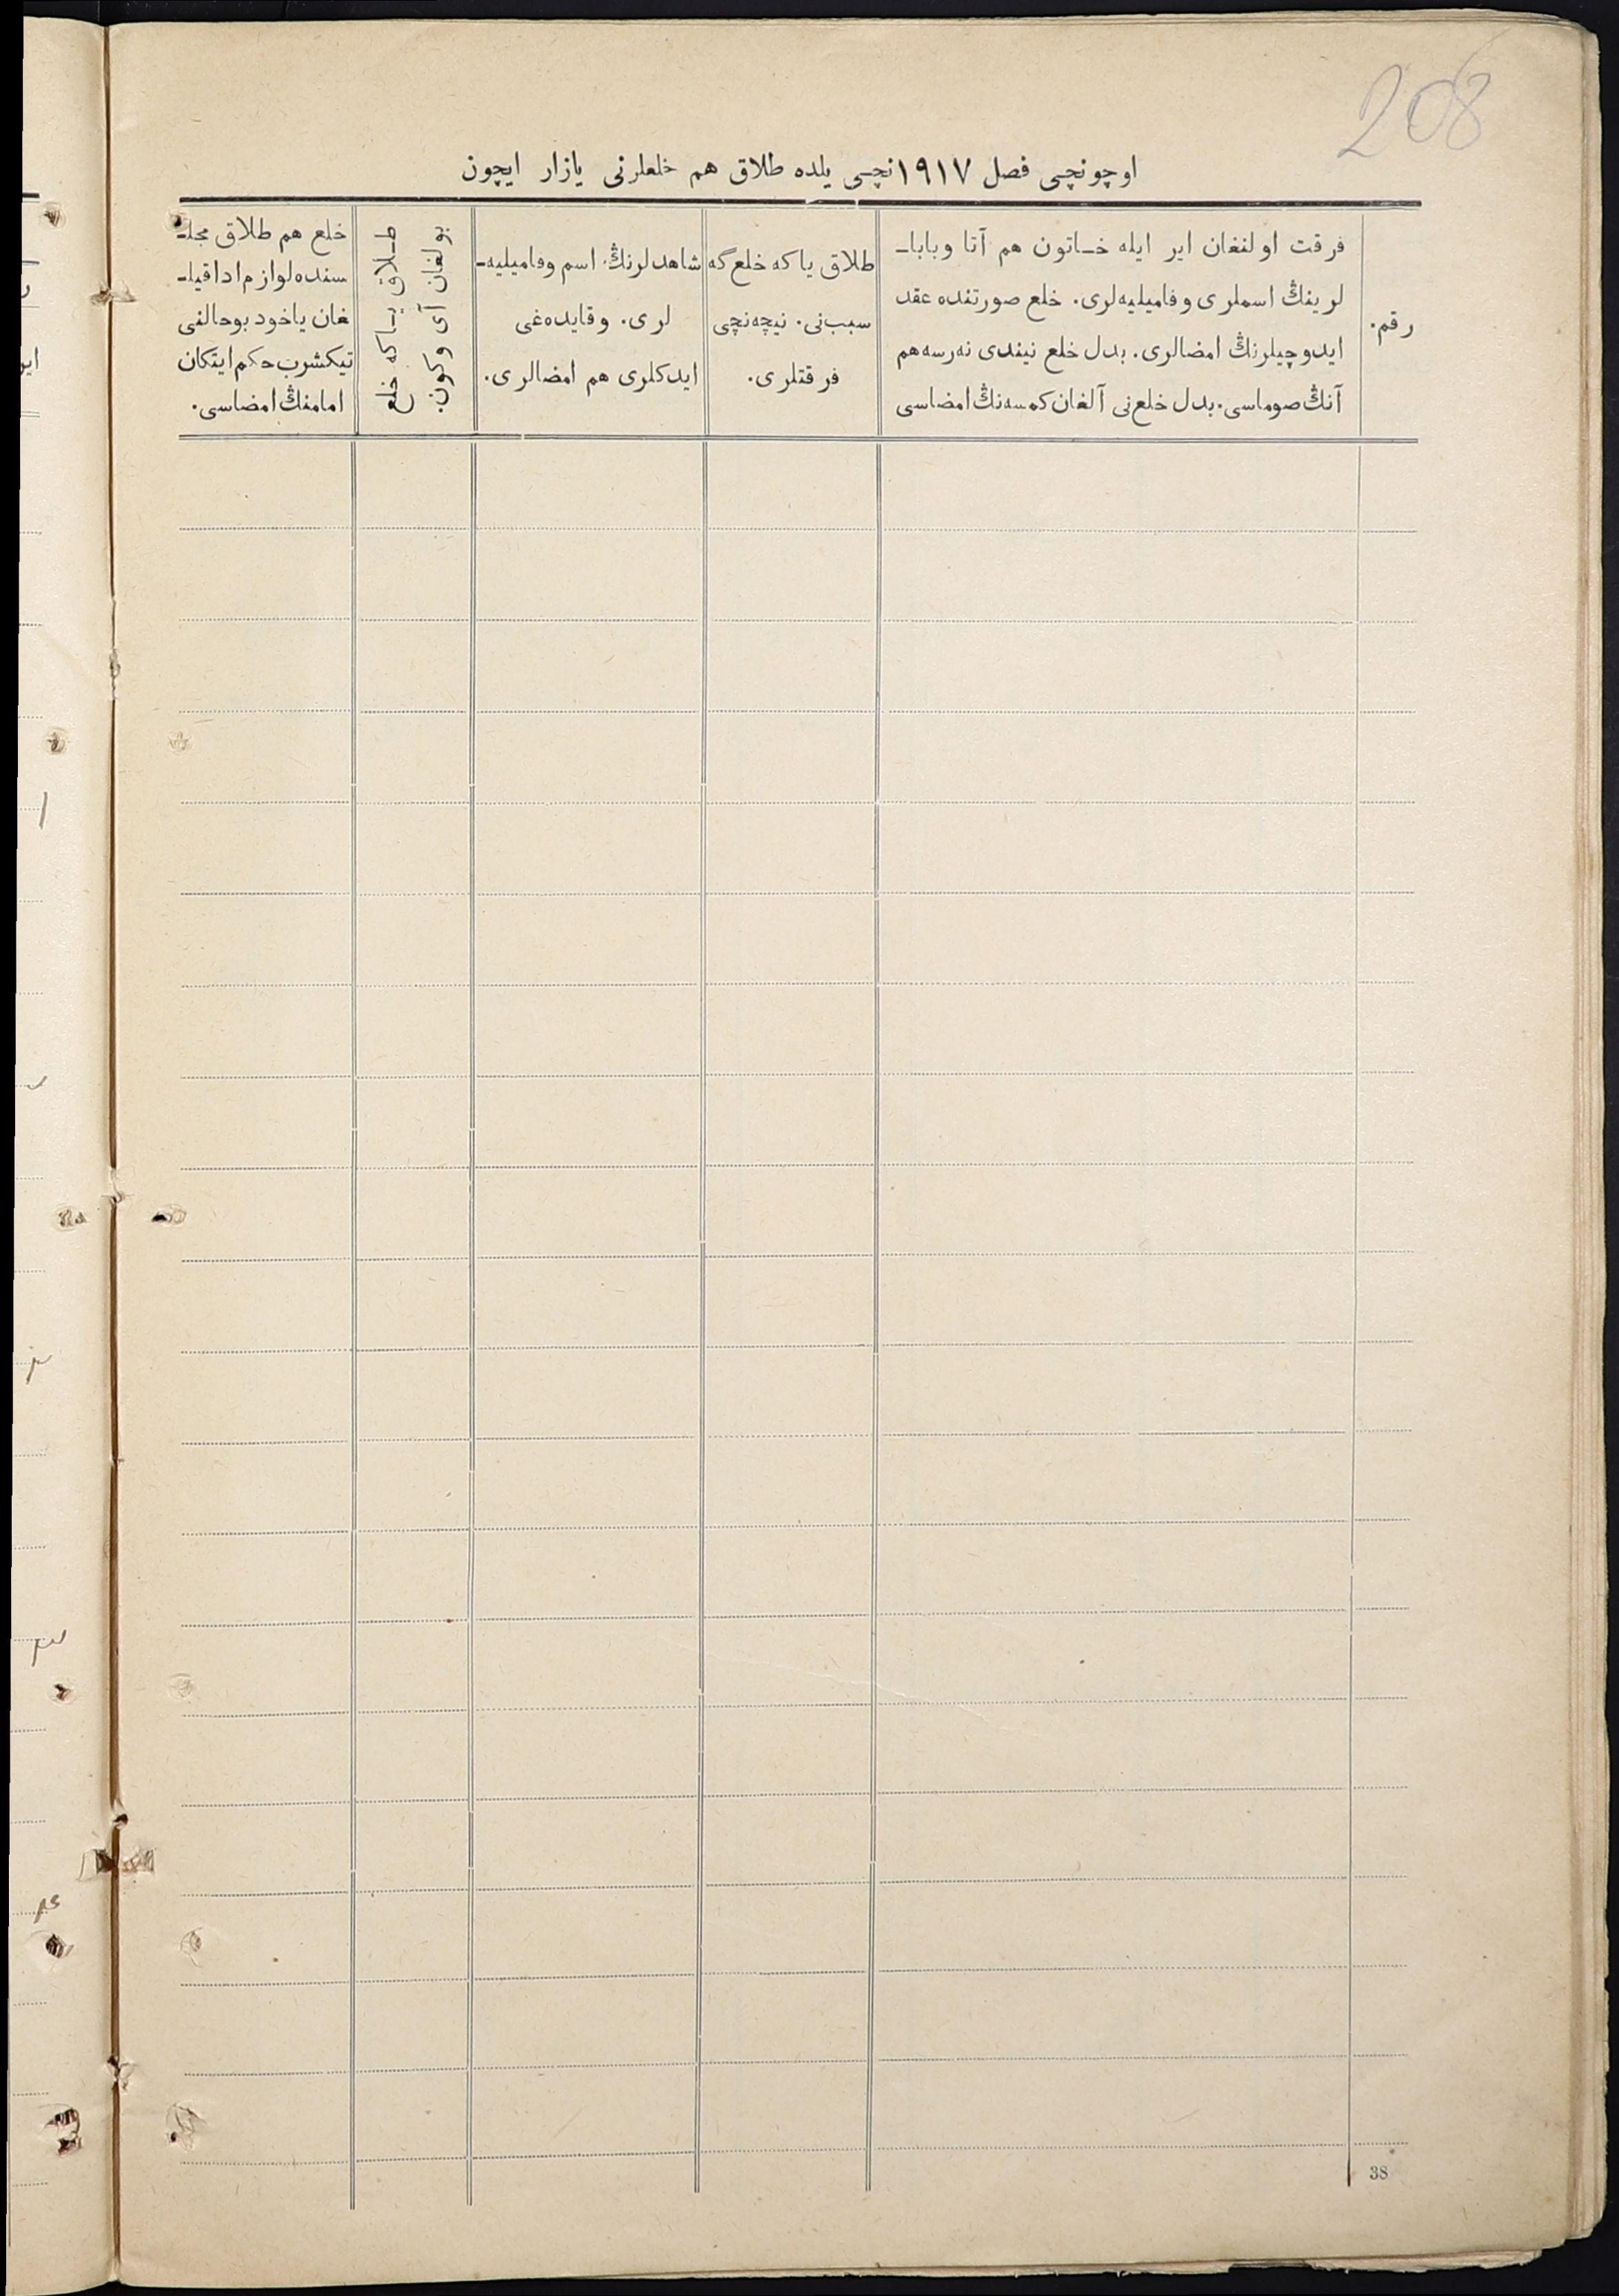 208
اوچونچی فصل ١٩١٧نچی یلده طلاق هم خلعلرنی یازار ایچون
رقم.
فرقت اولنغان ایر ایله خـاتون هم آتا وباباـ
لرینڭ اسملری وفامیلیه‌لری. خلع صورتنده عقد
ایدوچیلرنڭ امضالری. بدل خلع نیندی نه‌رسه هم
آنڭ صوماسی. بدل خلع‌نی آلغان کمسه‌نڭ امضاسی
طلاق یا که خلع گه
سبب‌نی. نیچه‌نچی
فرقتلری.
شاهدلرنڭ اسم وفامیلیه‌ـ
لری. وقایده‌غی
ایدکلری هم امضالری.
طـلاق یـا که خلع
بولغان آی وکون.
خلع هم طلاق مجلـ
سنده لوازم ادا قیلـ
غان یاخود بوحالنی
تیکشرب حکم ایتکان
امامنڭ امضاسی.
38